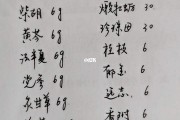 柴胡 6g
黄芩 6g
法半夏 6g
党参 6g
炙甘草 6g
煅牡蛎 30
珍珠母 30
桂枝 6
郁金 6
远志 6
香附 6